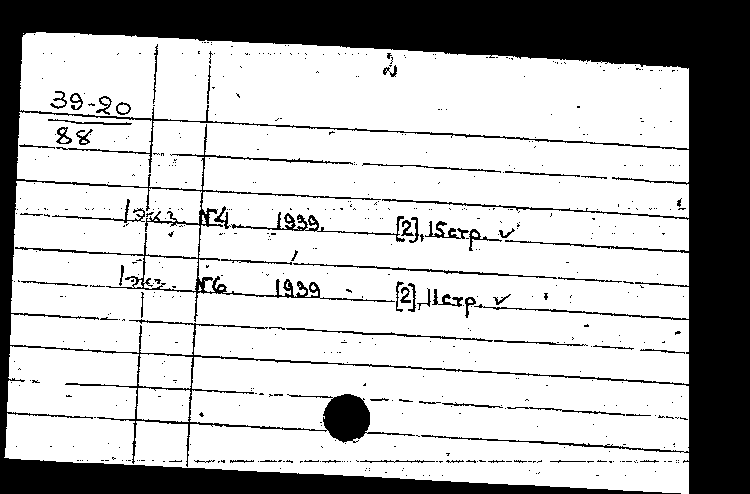 2
39-20
88
1 экз. №4. 1939. [2], 15 стр. ✓
1 экз. №6. 1939 - [2], 11 стр. ✓